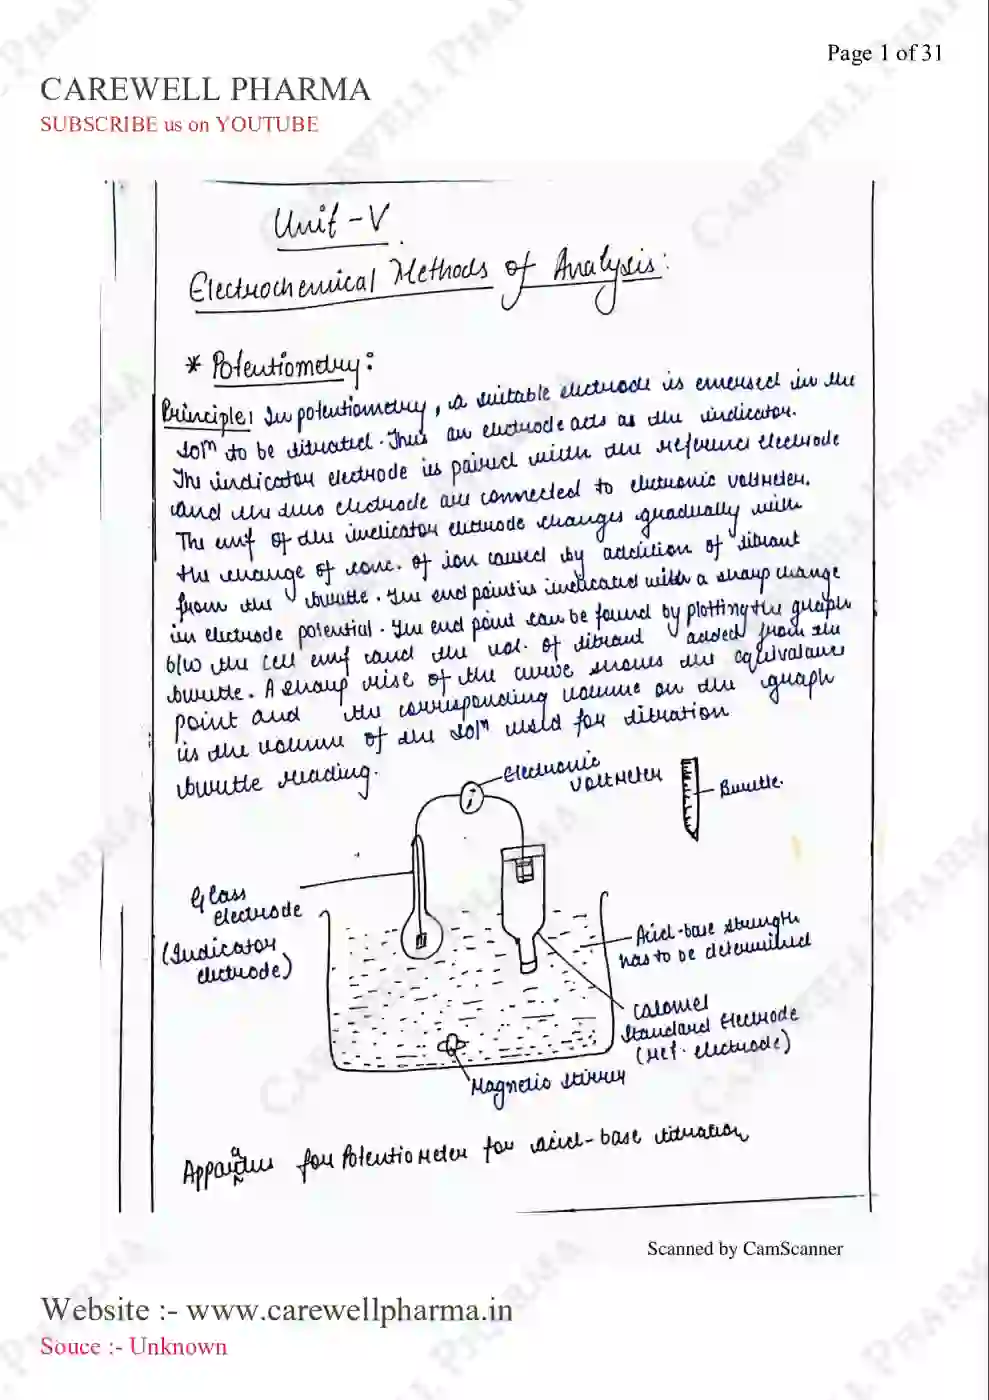 Page 1 of 31
CAREWELL PHARMA
SUBSCRIBE us on YOUTUBE
Unit - V
Electrochemical Methods of Analysis:
* Potentiometry:
Principle: In potentiometry, a suitable electrode is emersed in the
solⁿ to be titrated. Thus an electrode acts as the indicator.
The indicator electrode is paired with the reference electrode
and the two electrode are connected to electronic voltmeter.
The emf of the indicator electrode changes gradually with
the change of conc. of ion caused by addition of titrant
from the burette. The end point is indicated with a sharp change
in electrode potential. The end point can be found by plotting the graph
b/w the cell emf and the vol. of titrant added from the
burette. A sharp rise of the curve shows the equivalance
point and the corresponding volume on the graph
is the volume of the solⁿ used for titration
burette reading.
Electronic
voltmeter
Burette.
Glass
electrode
(Indicator
electrode)
Acid-base strength
has to be determined
Calomel
standard Electrode
(ref. electrode)
Magnetic stirrer
Apparatus for Potentiometer for acid-base titration
Scanned by CamScanner
Website :- www.carewellpharma.in
Souce :- Unknown